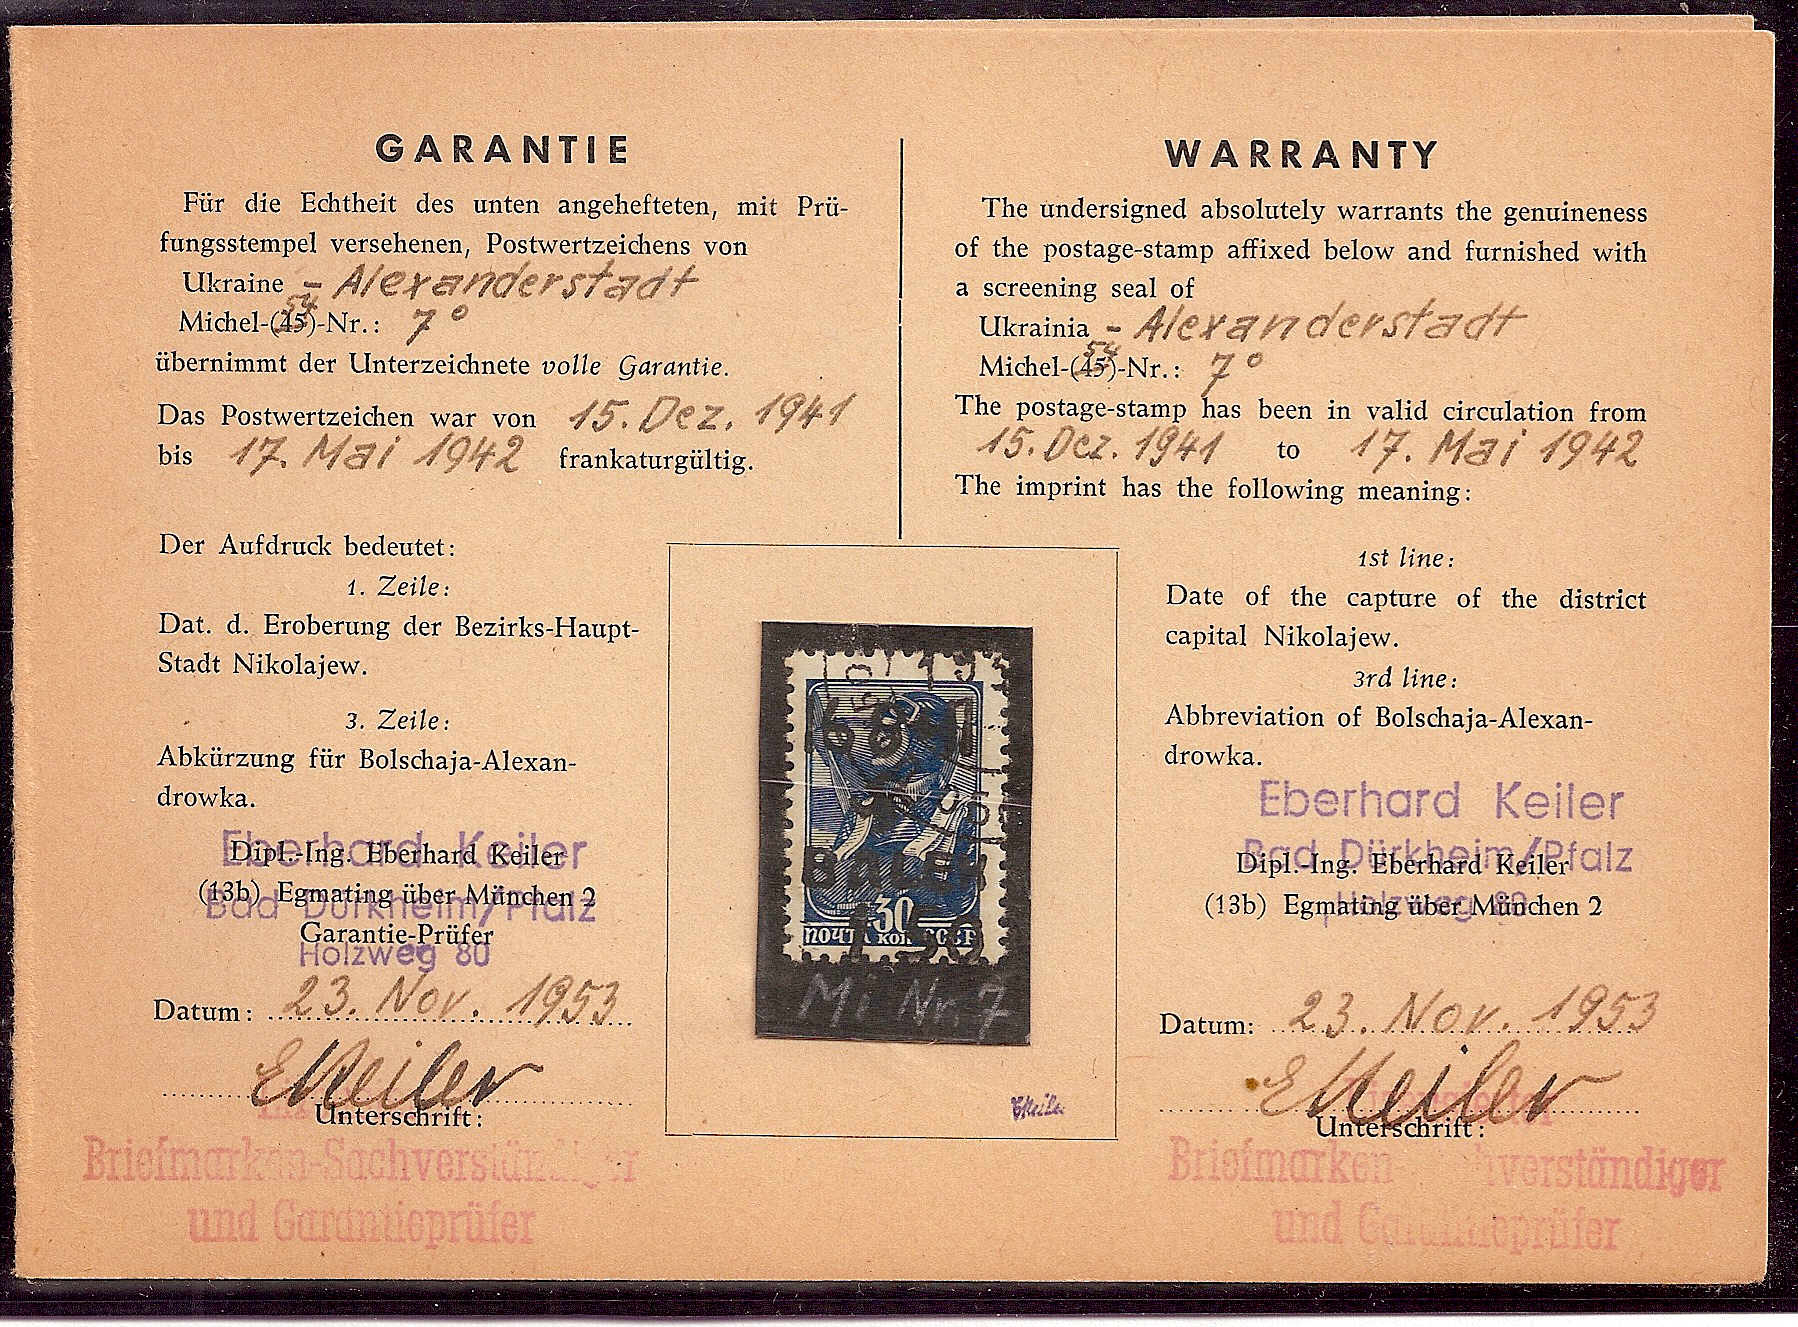 GARANTIE
Für die Echtheit des unten angehefteten, mit Prü-
fungsstempel versehenen, Postwertzeichens von
Ukraine – Alexanderstadt
54
Michel-(45)-Nr.: 7°
übernimmt der Unterzeichnete volle Garantie.
Das Postwertzeichen war von 15. Dez. 1941
bis 17. Mai 1942 frankaturgültig.
Der Aufdruck bedeutet:
1. Zeile:
Dat. d. Eroberung der Bezirks-Haupt-
Stadt Nikolajew.
3. Zeile:
Abkürzung für Bolschaja-Alexan-
drowka.
Eberhard Keiler
Dipl.-Ing. Eberhard Keiler
Bad Dürkheim/Pfalz
(13b) Egmating über München 2
Garantie-Prüfer
Holzweg 80
Datum: 23. Nov. 1953
EKeiler
Unterschrift:
Briefmarken-Sachverständiger
und Garantieprüfer
WARRANTY
The undersigned absolutely warrants the genuineness
of the postage-stamp affixed below and furnished with
a screening seal of
Ukrainia – Alexanderstadt
54
Michel-(45)-Nr.: 7°
The postage-stamp has been in valid circulation from
15. Dez. 1941 to 17. Mai 1942
The imprint has the following meaning:
1st line:
Date of the capture of the district
capital Nikolajew.
3rd line:
Abbreviation of Bolschaja-Alexan-
drowka.
Eberhard Keiler
Bad Dürkheim/Pfalz
Dipl.-Ing. Eberhard Keiler
(13b) Egmating über München 2
Holzweg 80
Datum: 23. Nov. 1953
EKeiler
Unterschrift:
Briefmarken Sachverständiger
und Garantieprüfer
30
ПОЧТА КОП СССР
Mi Nr. 7
EKeiler